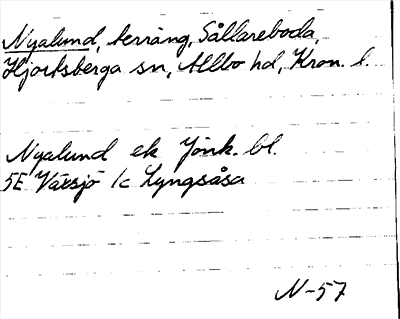 Nyalund, terräng, Sållareboda,
Hjortsberga sn, Allbo hd, Kron. l.
Nyalund ek Jönk. bl.
5E Växsjö 1c Lyngsåsa
N-57